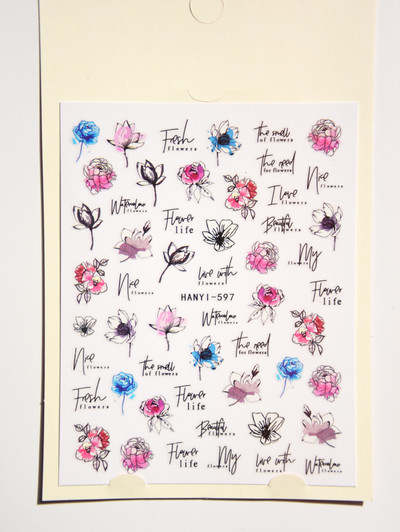 Fresh
flowers
the smell
of flowers
the need
for flowers
Nice
flowers
I love
flowers
Watercolour
flowers
Flower
life
Beautiful
flowers
My
flowers
Nice
flowers
live with
flowers
HANYI-597
Flower
life
Watercolour
flowers
Nice
flowers
the smell
of flowers
the need
for flowers
Fresh
flowers
Flower
life
Beautiful
flowers
Flower
life
My
flowers
live with
flowers
Watercolour
flowers